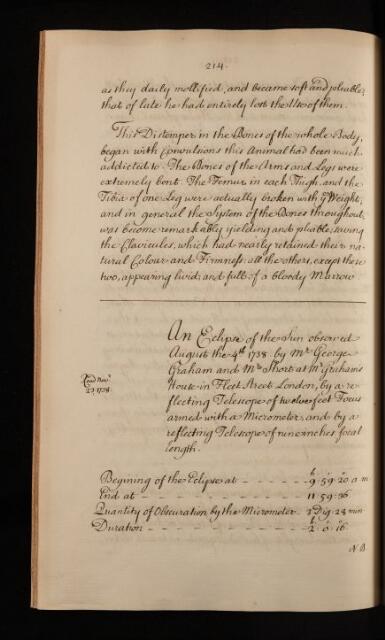 214.
as they daily mollified, and became soft and pliable;
that of late he had entirely lost the Use of them.
This Distemper in the Bones of the whole Body,
began with Convulsions this Animal had been much
addicted to. The Bones of the Arms and Legs were
extremely bent. The Femur in each Thigh, and the
Tibia of one Leg were actually broken with yͤ Weight;
and in general the System of the Bones throughout,
was become remarkably yielding and pliable; saving
the Clavicules, which had nearly retained their na-
tural Colour and Firmness; all the others, except these
two, appearing livid; and full of a bloody Marrow.
An Eclipse of the Sun observed
August the 4th 1738. by Mr George
Graham and Mr Short, at Mr Grahams
House in Fleet Street London, by a re-
flecting Telescope of twelve feet Focus
armed with a Micrometer, and by a
reflecting Telescope of nine inches focal
length.
Read Novr
23. 1738.
Begining of the Eclipse at - - - - - h 9. 59. 20 a m
End at - - - - - 11. 59. 36
Quantity of Obscuration by the Micrometer. 2 Dig. 23 min
Duration - - - - - h 2. 0. 16
N.B